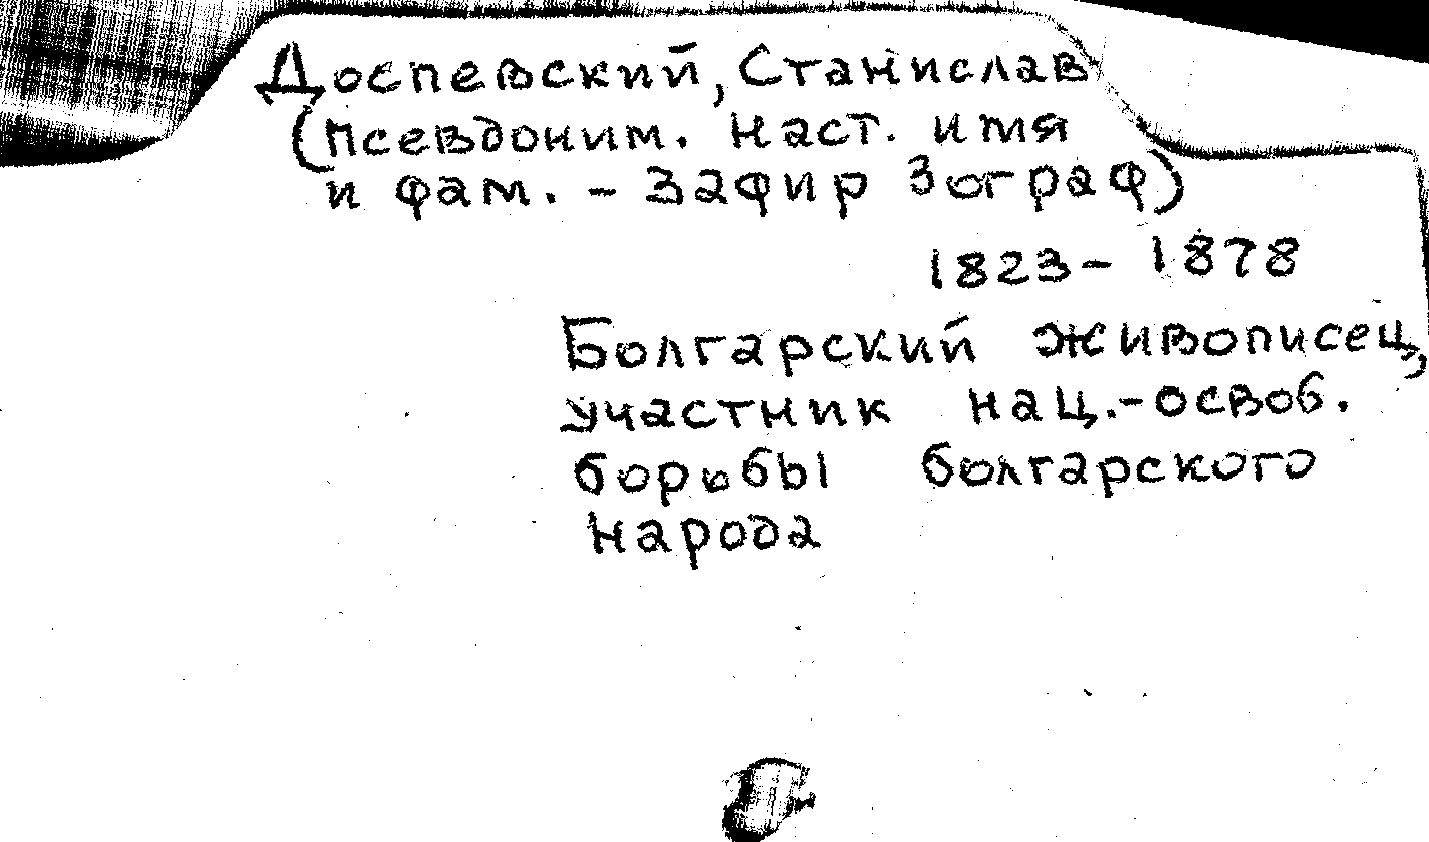 Доспевский, Станислав
(Псевдоним. Наст. имя
и фам. - Зафир Зограф)
1823 - 1878
Болгарский живописец,
участник нац.-освоб.
борьбы болгарского
народа